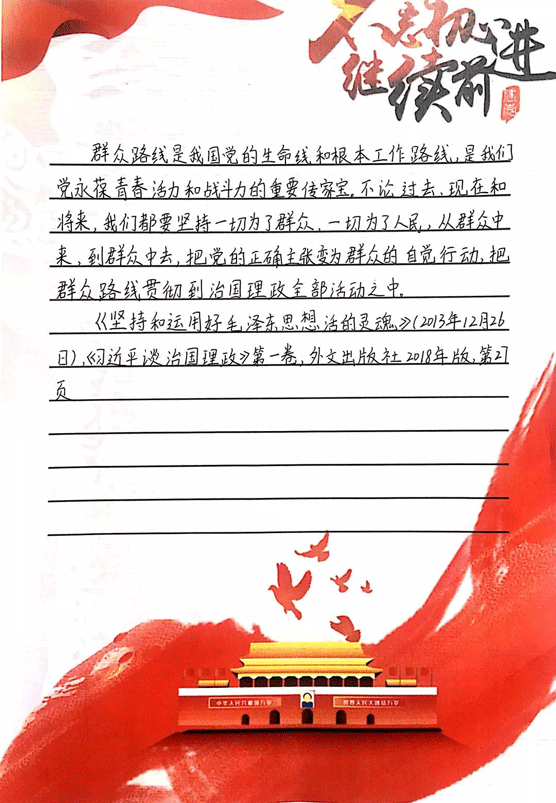 不忘初心
继续前进
群众路线是我国党的生命线和根本工作路线,是我们
党永葆青春活力和战斗力的重要传家宝。不论过去、现在和
将来,我们都要坚持一切为了群众、一切为了人民,从群众中
来,到群众中去,把党的正确主张变为群众的自觉行动,把
群众路线贯彻到治国理政全部活动之中。
《坚持和运用好毛泽东思想活的灵魂》(2013年12月26
日),《习近平谈治国理政》第一卷,外文出版社2018年版,第27
页
中华人民共和国万岁
世界人民大团结万岁